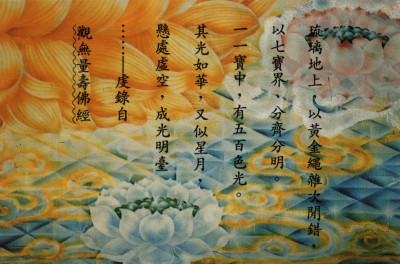 琉璃地上　以黃金繩雜次間錯，
以七寶界、分齊分明。
一一寶中，有五百色光。
其光如華，又似星月，
懸處虛空，成光明臺
……——虔錄自
觀無量壽佛經